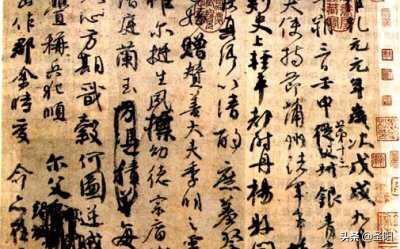 乾元元年歲次戊戌九
朔三日壬申第十三從父銀青
夫使持節蒲州諸軍事
刺史上輕車都尉丹楊縣
以清酌庶羞
姪贈贊善大夫季明
爾挺生夙標幼德宗廟
階庭蘭玉方憑積善每
心方期戩穀何圖逆賊
釁稱兵犯順爾父
山作郡余時受命亦在
头条 @圣阳